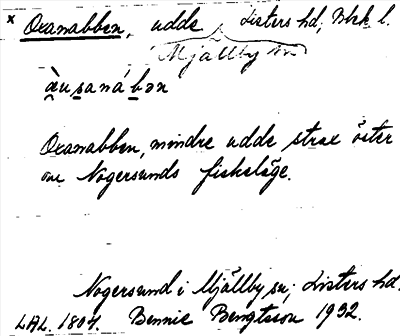 x Oxanabben, udde, Listers hd, Blek l.
Mjällby sn
àu̯sanábən
Oxanabben, mindre udde strax öster
om Nogersunds fiskeläge.
Nogersund i Mjällby sn; Listers hd.
LAL. 1804. Bennie Bengtsson 1932.